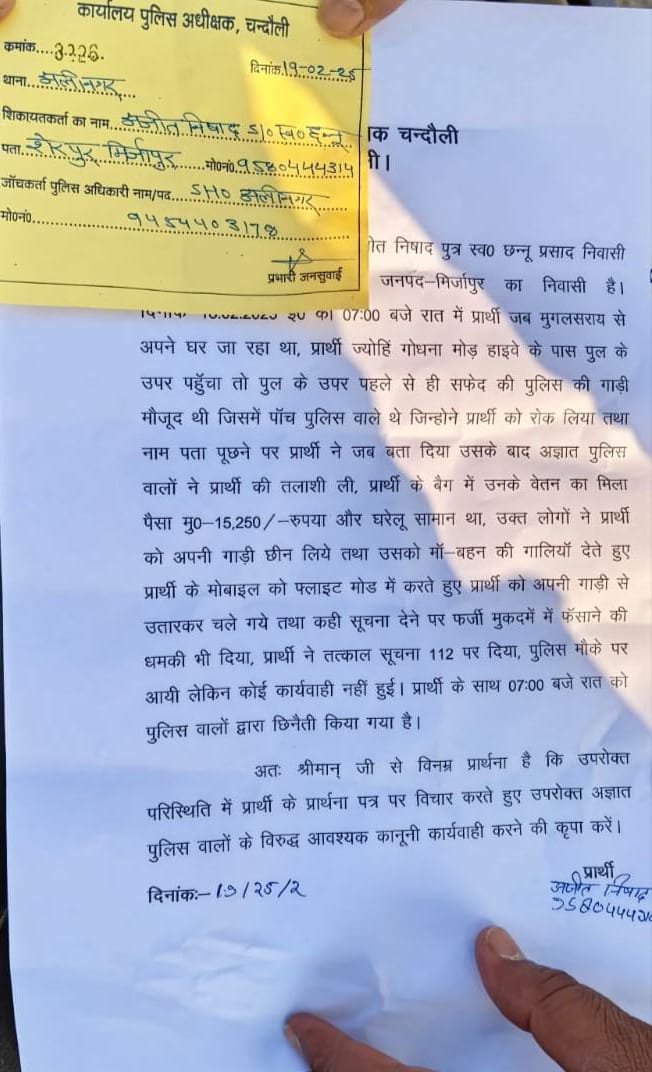 कार्यालय पुलिस अधीक्षक, चन्दौली
क्रमांक....3226.
दिनांक.19-02-25
थाना..अलीनगर
शिकायतकर्ता का नाम..अजीत निषाद S/० स्व० छन्नू
पता..शेरपुर मिर्जापुर.....मो०नं०.9580444314
जॉचकर्ता पुलिस अधिकारी नाम/पद...SHO अलीनगर
मो०नं०....9454403178
प्रभारी जनसुवाई
क चन्दौली
ी।
ीत निषाद पुत्र स्व0 छन्नू प्रसाद निवासी
जनपद-मिर्जापुर का निवासी है।
ई0 को 07:00 बजे रात में प्रार्थी जब मुगलसराय से
अपने घर जा रहा था, प्रार्थी ज्योहिं गोधना मोड़ हाइवे के पास पुल के
उपर पहुँचा तो पुल के उपर पहले से ही सफेद की पुलिस की गाड़ी
मौजूद थी जिसमें पॉच पुलिस वाले थे जिन्होने प्रार्थी को रोक लिया तथा
नाम पता पूछने पर प्रार्थी ने जब बता दिया उसके बाद अज्ञात पुलिस
वालों ने प्रार्थी की तलाशी ली, प्रार्थी के बैग में उनके वेतन का मिला
पैसा मु0-15,250/-रुपया और घरेलू सामान था, उक्त लोगों ने प्रार्थी
को अपनी गाड़ी छीन लिये तथा उसको मॉ-बहन की गालियॉ देते हुए
प्रार्थी के मोबाइल को फ्लाइट मोड में करते हुए प्रार्थी को अपनी गाड़ी से
उतारकर चले गये तथा कही सूचना देने पर फर्जी मुकदमें में फॅसाने की
धमकी भी दिया, प्रार्थी ने तत्काल सूचना 112 पर दिया, पुलिस मौके पर
आयी लेकिन कोई कार्यवाही नहीं हुई। प्रार्थी के साथ 07:00 बजे रात को
पुलिस वालों द्वारा छिनैती किया गया है।
अतः श्रीमान् जी से विनम्र प्रार्थना है कि उपरोक्त
परिस्थिति में प्रार्थी के प्रार्थना पत्र पर विचार करते हुए उपरोक्त अज्ञात
पुलिस वालों के विरुद्ध आवश्यक कानूनी कार्यवाही करने की कृपा करें।
प्रार्थी
दिनांकः-19/25/2
अजीत निषाद